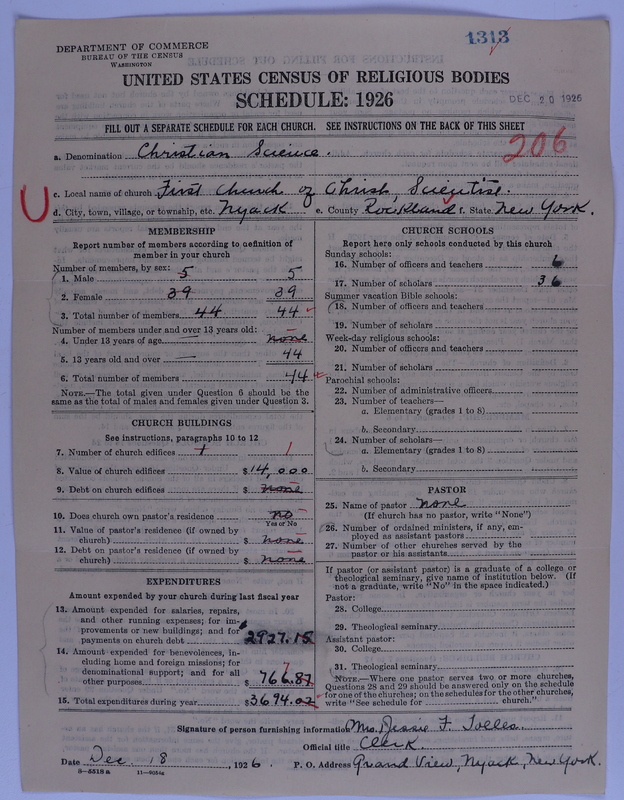 1313
DEPARTMENT OF COMMERCE
BUREAU OF THE CENSUS
WASHINGTON
UNITED STATES CENSUS OF RELIGIOUS BODIES
SCHEDULE: 1926
DEC 20 1926
FILL OUT A SEPARATE SCHEDULE FOR EACH CHURCH. SEE INSTRUCTIONS ON THE BACK OF THIS SHEET
206
a. Denomination Christian Science.
c. Local name of church First Church of Christ, Scientist.
d. City, town, village, or township, etc. Nyack e. County Rockland f. State New York.
MEMBERSHIP
Report number of members according to definition of
member in your church
Number of members, by sex:
1. Male 5 5
2. Female 39 39
3. Total number of members 44 44
Number of members under and over 13 years old:
4. Under 13 years of age none
5. 13 years old and over 44
6. Total number of members 44
NOTE.—The total given under Question 6 should be the
same as the total of males and females given under Question 3.
CHURCH BUILDINGS
See instructions, paragraphs 10 to 12
7. Number of church edifices 1 1
8. Value of church edifices $14,000
9. Debt on church edifices $ none
10. Does church own pastor's residence no
Yes or No
11. Value of pastor's residence (if owned by
church) $ none
12. Debt on pastor's residence (if owned by
church) $ none
EXPENDITURES
Amount expended by your church during last fiscal year
13. Amount expended for salaries, repairs,
and other running expenses; for im-
provements or new buildings; and for
payments on church debt 2927.15
14. Amount expended for benevolences, in-
cluding home and foreign missions; for
denominational support; and for all
other purposes $ 766.87
15. Total expenditures during year $3694.02
CHURCH SCHOOLS
Report here only schools conducted by this church
Sunday schools:
16. Number of officers and teachers 6
17. Number of scholars 36
Summer vacation Bible schools:
18. Number of officers and teachers
19. Number of scholars
Week-day religious schools:
20. Number of officers and teachers
21. Number of scholars
Parochial schools:
22. Number of administrative officers
23. Number of teachers—
a. Elementary (grades 1 to 8)
b. Secondary
24. Number of scholars—
a. Elementary (grades 1 to 8)
b. Secondary
PASTOR
25. Name of pastor none
(If church has no pastor, write "None")
26. Number of ordained ministers, if any, em-
ployed as assistant pastors
27. Number of other churches served by the
pastor or his assistants
If pastor (or assistant pastor) is a graduate of a college or
theological seminary, give name of institution below. (If
not a graduate, write "No" in the space indicated.)
Pastor:
28. College
29. Theological seminary
Assistant pastor:
30. College
31. Theological seminary
NOTE.—Where one pastor serves two or more churches,
Questions 28 and 29 should be answered only on the schedule
for one of the churches; on the schedules for the other churches,
write "See schedule for church."
Signature of person furnishing information Mrs. Jessie F. Tolles.
Official title Clerk.
Date Dec. 18, 1926. P. O. Address Grand View, Nyack, New York.
8—5518 a 11—9054a